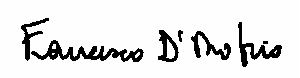 Francesco D'Onofrio